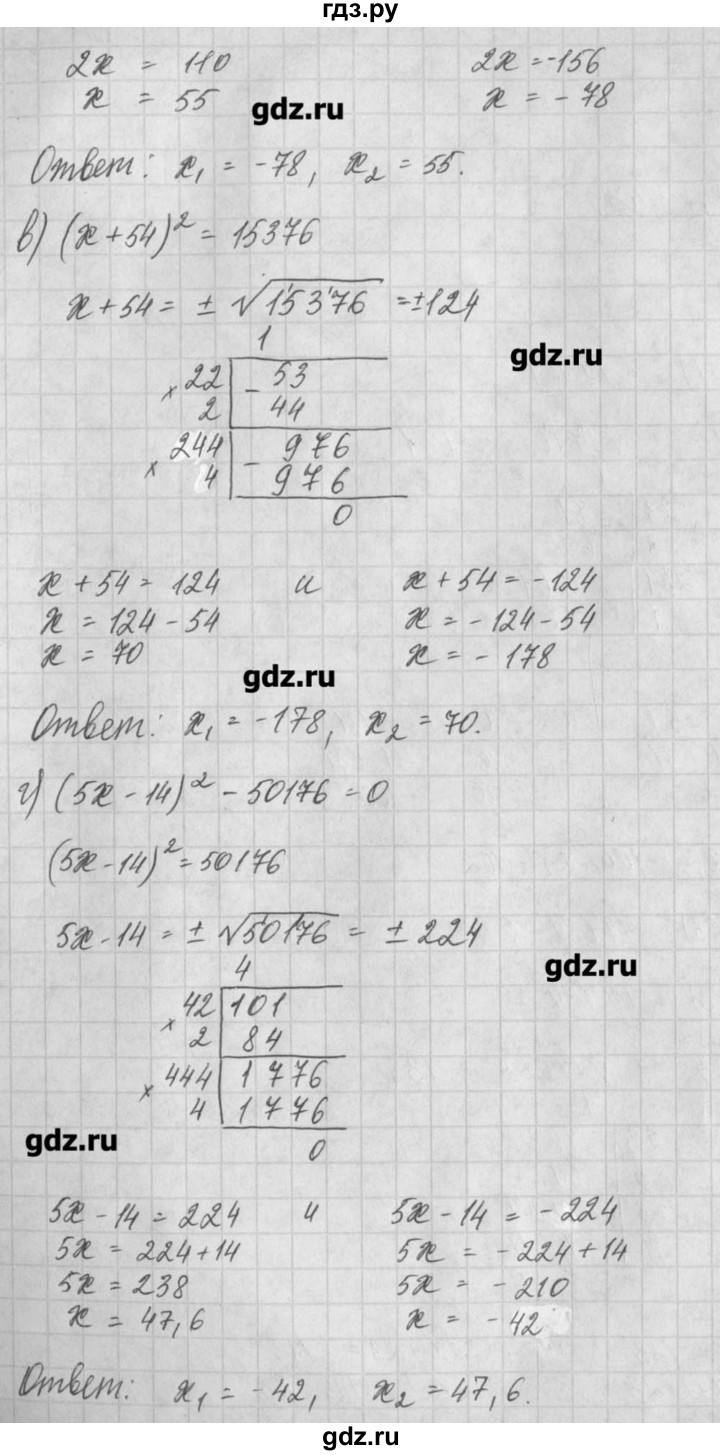 гдз.ру
2x = 110 2x = -156
x = 55 x = -78
gdz.ru
Ответ: x₁ = -78, x₂ = 55.
в) (x+54)² = 15376
x+54 = ± √15376 = ±124
1
gdz.ru
× 22 - 53
2 44
× 244 - 976
4 976
0
x + 54 = 124 и x + 54 = -124
x = 124 - 54 x = -124 - 54
x = 70 x = -178
gdz.ru
Ответ: x₁ = -178, x₂ = 70.
г) (5x - 14)² - 50176 = 0
(5x - 14)² = 50176
5x - 14 = ± √50176 = ± 224
gdz.ru
4
× 42 101
2 84
× 444 1776
4 1776
gdz.ru
0
5x - 14 = 224 и 5x - 14 = -224
5x = 224 + 14 5x = -224 + 14
5x = 238 5x = -210
x = 47,6 x = -42
Ответ: x₁ = -42, x₂ = 47,6.
gdz.ru